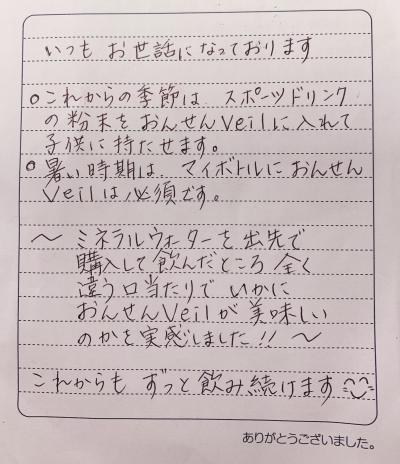 いつも お世話になっております
○これからの季節は スポーツドリンク
の粉末をおんせんVeilに入れて
子供に持たせます。
○暑い時期は、マイボトルにおんせん
Veilは必須です。
〜 ミネラルウォーターを出先で
購入して飲んだところ 全く
違う口当たりで いかに
おんせんVeilが美味しい
のかを実感しました!! 〜
これからも ずっと飲み続けます
ありがとうございました。